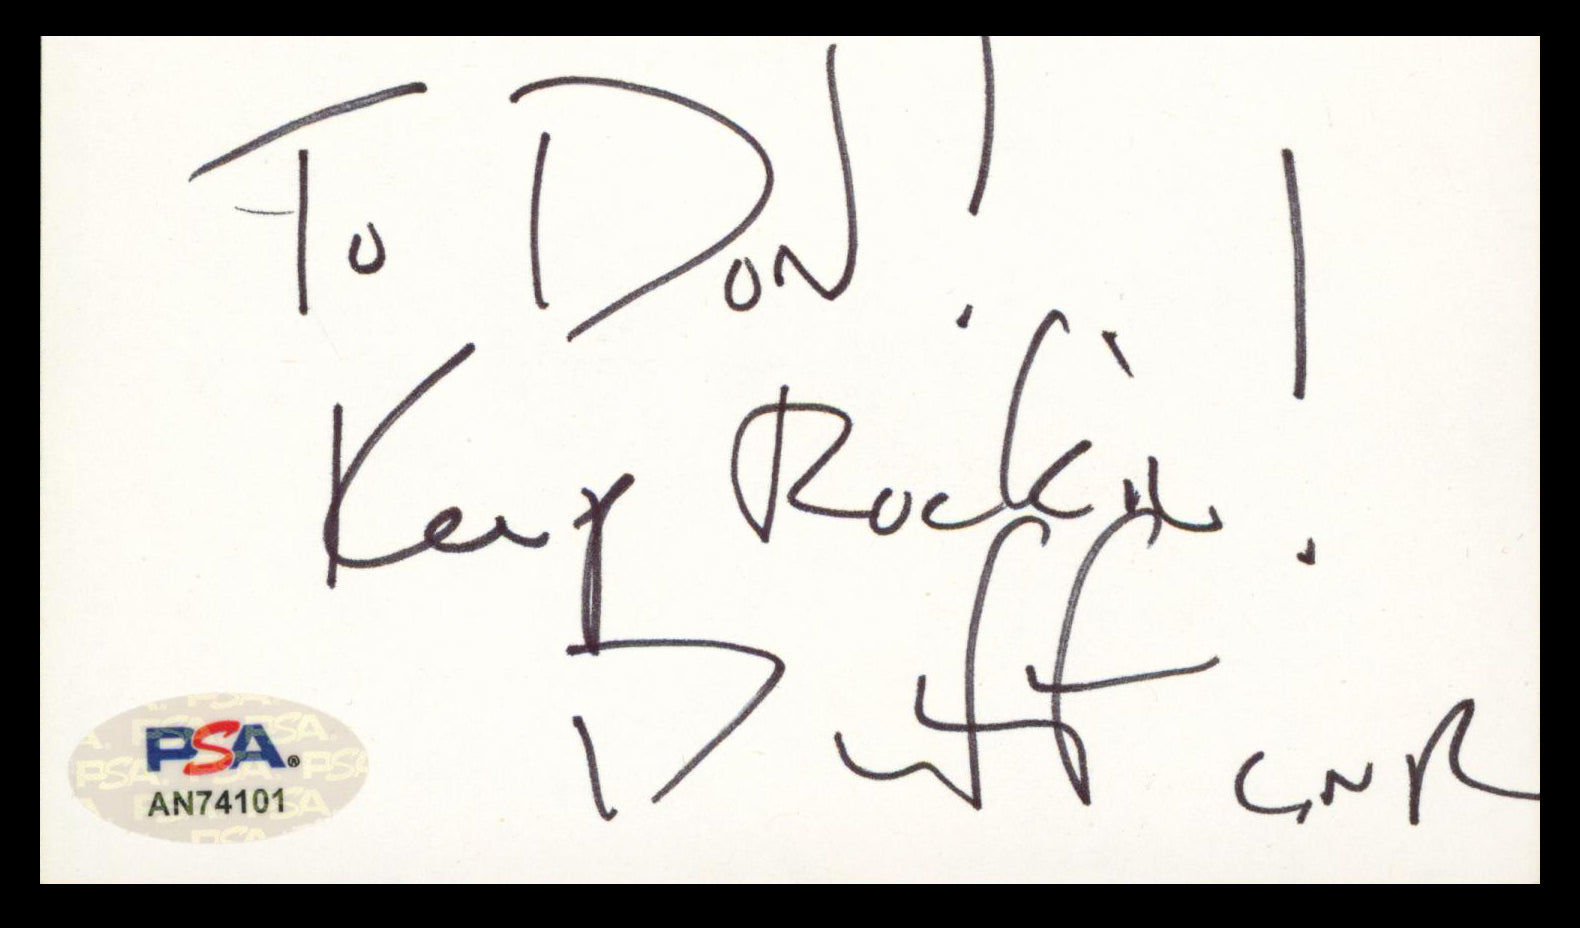 To Don!
Keep Rockin!
Duff GNR
PSA®
AN74101